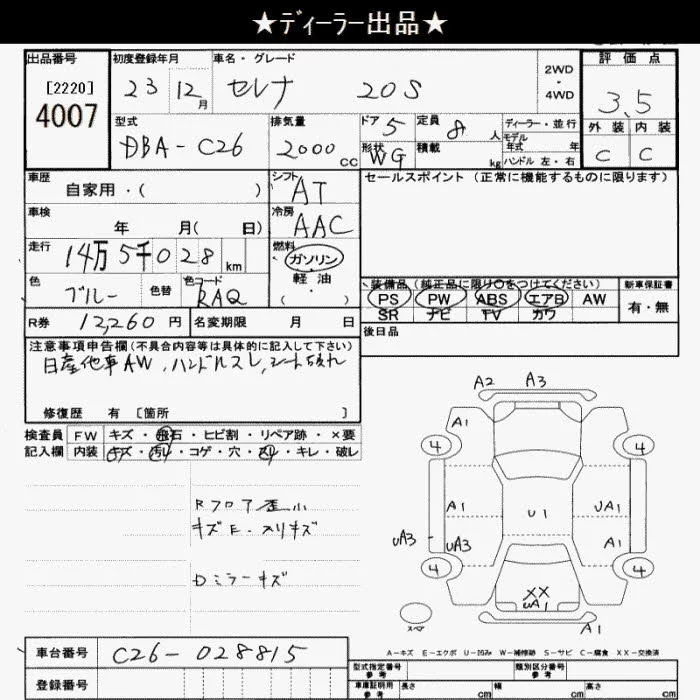 ★ディーラー出品★
出品番号 初度登録年月 車名・グレード 評価点
[2220] 23 12月 セレナ 20S 2WD・4WD 3.5
4007 型式 排気量 ドア 5 定員 8人 ディーラー・並行 外装 内装
DBA-C26 2000cc 形状 WG 積載 kg モデル年式 年 ハンドル 左・右 C C
車歴 自家用・( ) シフト AT セールスポイント(正常に機能するものに限ります)
車検 年 月( 日) 冷房 AAC
走行 14万5千028km 燃料 ガソリン 軽油 ( ・ )
装備品(純正品に限り〇をつけてください) 新車保証書
色 ブルー 色替 色コード RAQ PS PW ABS エアB AW 有・無
SR ナビ TV カワ
R券 12,260円 名変期限 月 日 後日品
注意事項申告欄(不具合内容等は具体的に記入して下さい)
日産他車AW、ハンドルスレ、シート破れ
修復歴 有 [箇所 ]
検査員 FW キズ・飛石・ヒビ割・リペア跡・×要
記入欄 内装 キズ・汚レ・コゲ・穴・スレ・キレ・破レ
Rフロア歪小
キズE・スリキズ
Dミラーキズ
A2 A3
A1
4 4
A1 U1 UA1
UA3 UA3 A1
4 4
XX
UA1
スペア A1
A-キズ E-エクボ U-凹み W-補修跡 S-サビ C-腐食 XX-交換済
車台番号 C26-028815 型式指定番号 参考 類別区分番号 参考
登録番号 車庫証明用 参考 長さ cm 幅 cm 高さ cm